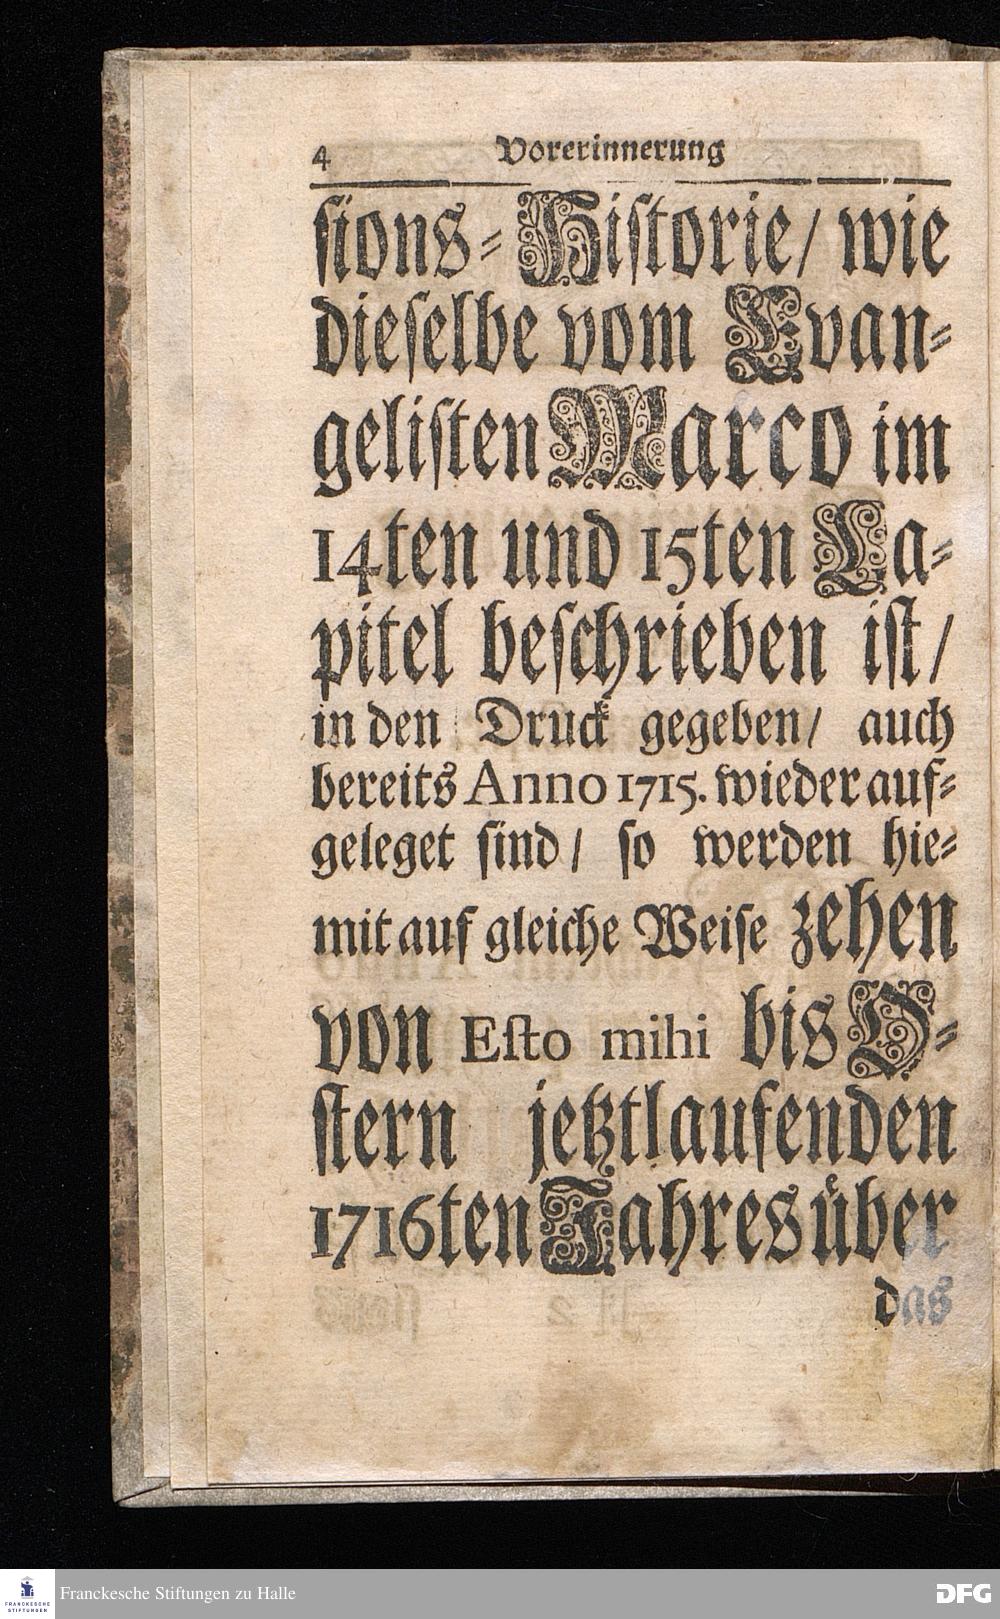 4 Vorerinnerung
ſions-Hiſtorie/ wie
dieſelbe vom Evan-
geliſten Marco im
14ten und 15ten Ca-
pitel beſchrieben iſt/
in den Druck gegeben/ auch
bereits Anno 1715. wieder auf-
geleget ſind/ ſo werden hie-
mit auf gleiche Weiſe zehen
von Eſto mihi bis O-
ſtern jetztlaufenden
1716ten Jahres über
das
FRANCKESCHE
STIFTUNGEN
Franckesche Stiftungen zu Halle
DFG